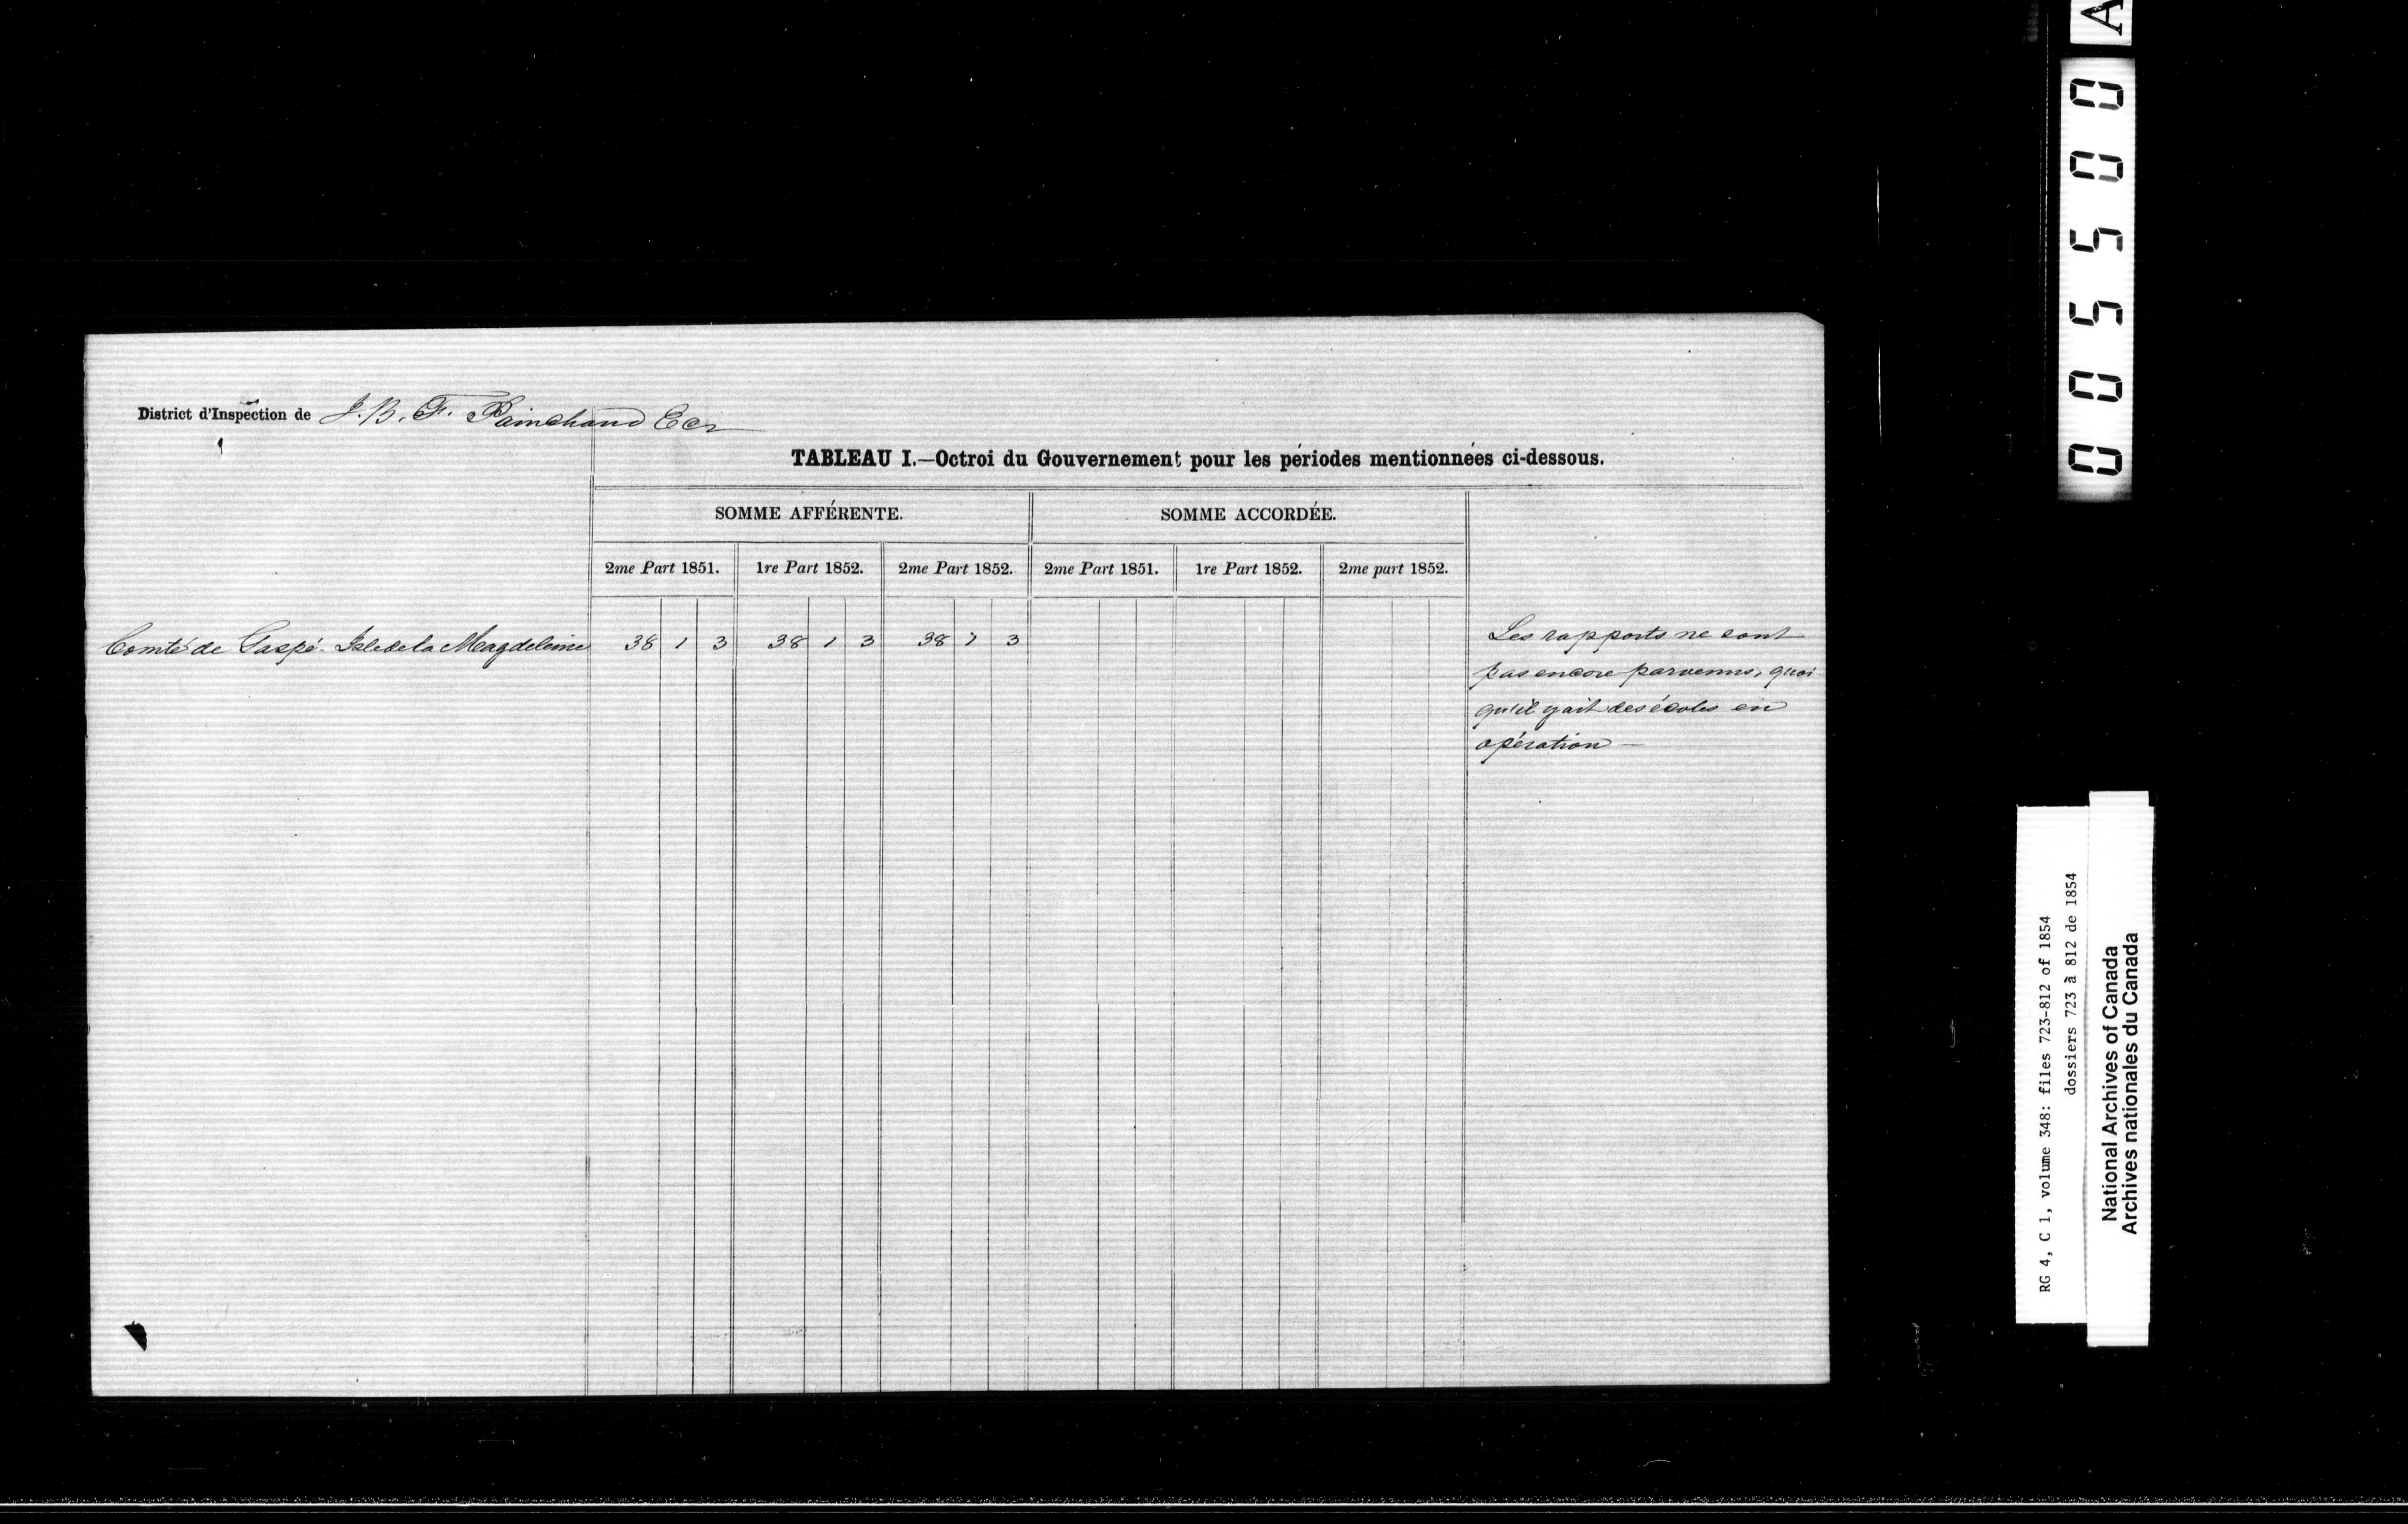 District d'Inspection de J. B. F. Painchaud Ecr
TABLEAU I.—Octroi du Gouvernement pour les périodes mentionnées ci-dessous.
SOMME AFFÉRENTE. SOMME ACCORDÉE.
2me Part 1851. 1re Part 1852. 2me Part 1852. 2me Part 1851. 1re Part 1852. 2me part 1852.
Comté de Gaspé. Isle de la Magdeleine 38 1 3 38 1 3 38 1 3
Les rapports ne sont
pas encore parvenus, quoi-
qu'il y ait des écoles en
opération —
005500
A
RG 4, C 1, volume 348: files 723-812 of 1854
dossiers 723 à 812 de 1854
National Archives of Canada
Archives nationales du Canada